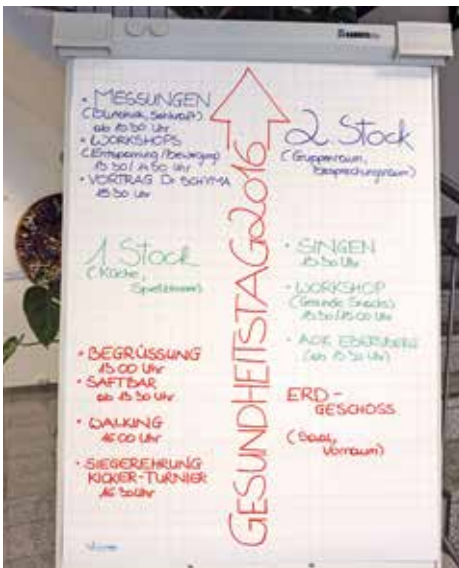 • MESSUNGEN
(Blutdruck, Sehkraft)
ab 13 30 Uhr
• WORKSHOPS
(Entspannung/Bewegung)
13 30/14 30 Uhr
• VORTRAG Dr SCHYMA
15 30 Uhr
2 Stock
(Gruppenraum,
Besprechungsraum)
1 Stock
(Küche,
• SINGEN
15 30 Uhr
• WORKSHOP
(Gesunde Snacks)
13 30/15 00 Uhr
• AOK EBERSBERG
(ab 13 30 Uhr)
• BEGRÜSSUNG
13 00 Uhr
• SAFTBAR
ab 13 30 Uhr
• WALKING
16 00 Uhr
• SIEGEREHRUNG
KICKER-TURNIER
16 30 Uhr
ERD-
GESCHOSS
(Saal,
Vorraum)
GESUNDHEITSTAG 2016